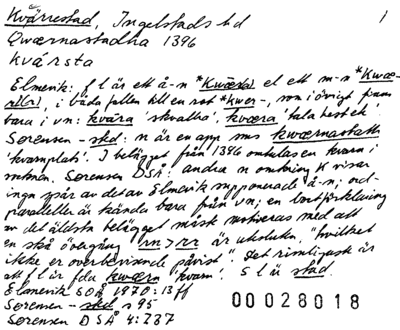 Kvärrestad, Ingelstads hd 1
Qwærnastadha 1396
kvärsta
Elmevik: f l är ett å-n *Kwæra el ett m-n *Kwæ-
, i båda fallen till en rot *kwer-, som i övrigt finns
bara i vn: kvära 'skvalta', kværa 'tala bestek'
Sørensen -sted: n är en app sms kwærnastath
'kvarnplats'. I belägget från 1396 omtalas en kvarn i
. Sørensen DSÅ: andra n omkring K visar
inga spår av det av Elmevik supponerade å-n; ord-
paralleller är kända bara från vn; en bortförklaring
av det äldsta belägget måste motiveras med att
en skå övergång rn > rr är utesluten, "hvilket
ikke er overbevisende påvist". Det rimligaste är
att f l är fda kværn 'kvarn'. S l är stad.
Elmevik SOÅ 1970:13 ff
Sørensen -sted s 95
Sørensen DSÅ 4:287
00028018